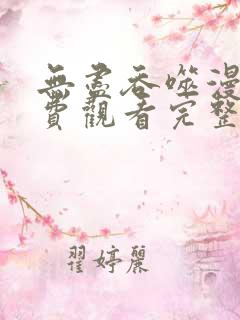 無盡吞噬漫
費觀看完整
翟婷麗